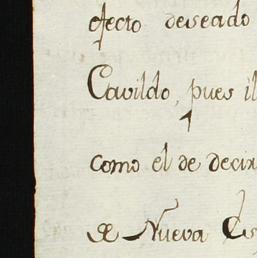 efecto deseado
Cavildo, pues
como el de decir
de Nueva